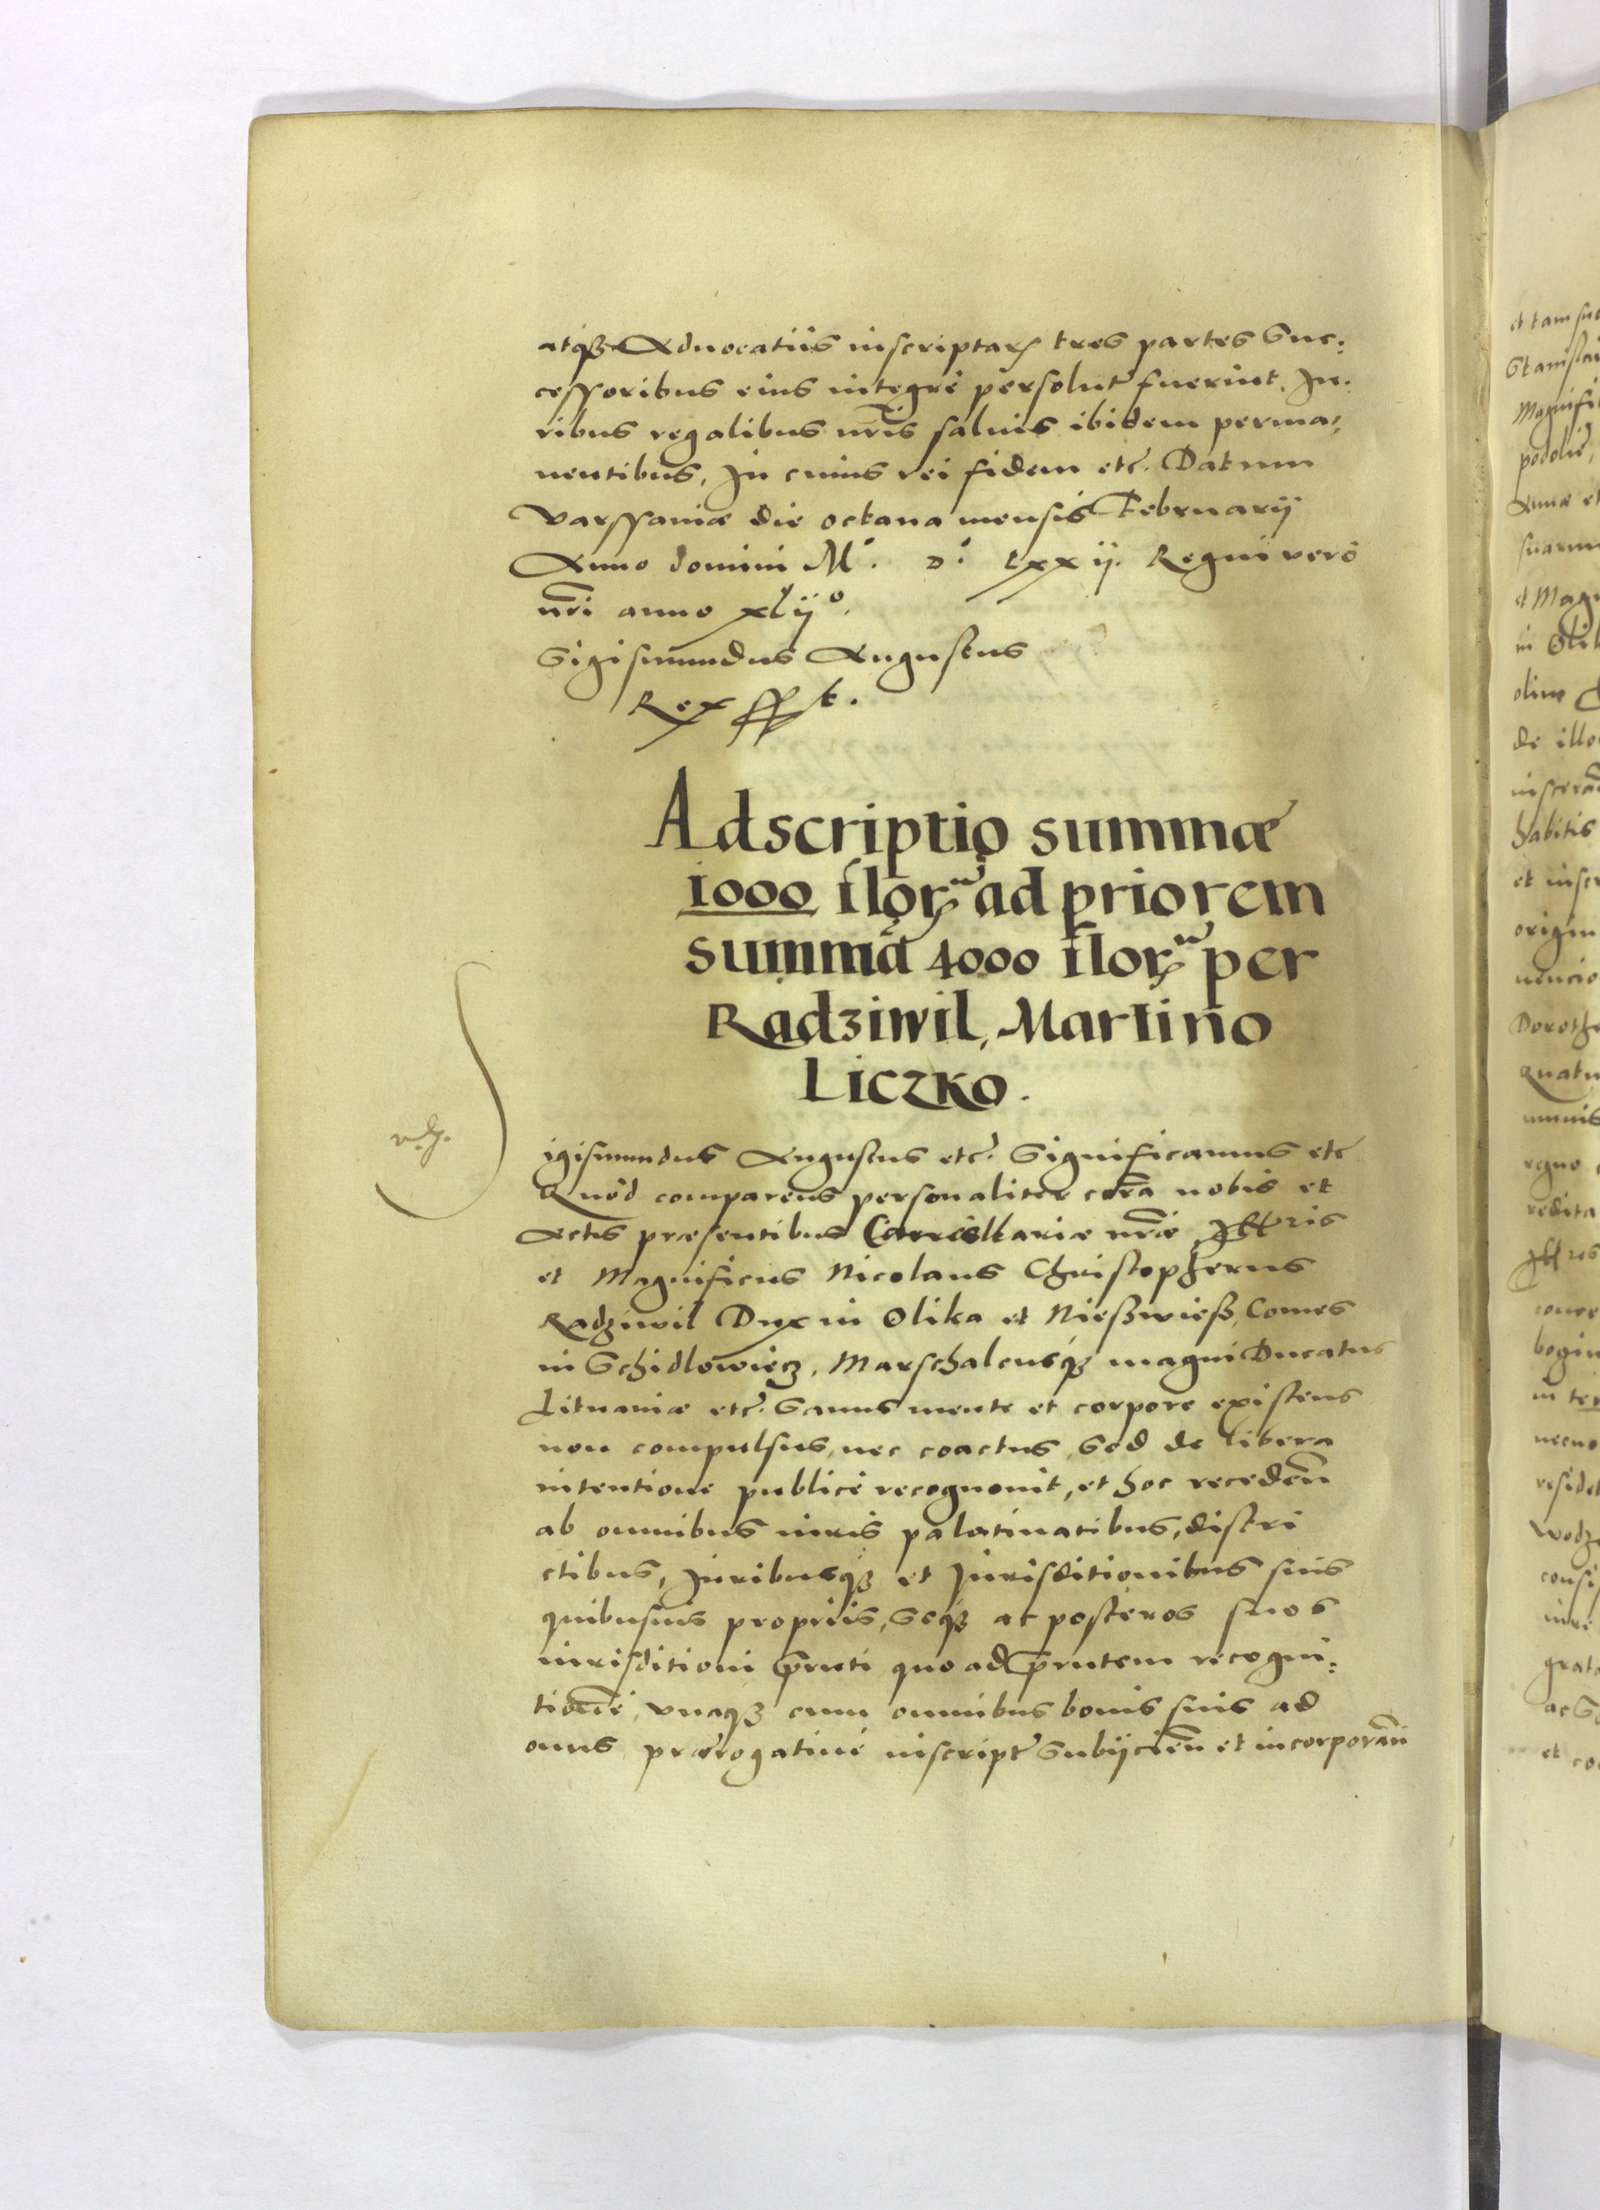 atqꝫ Aduocatiis inscriptarꝝ tres partes Suc:
cessoribus eius integrè persolutę fuerint. Iu:
ribus regalibus nr̃is saluis ibidem perma:
nentibus, In cuius rei fidem etc̃. Datum
Varssaviæ die octaua mensis Februarij
Anno domini Mº. Dº. Lxxij. Regni verò
nr̃i anno xlijº.
Sigismundus Augustus
Rex sspt.
Adscriptio summæ
1000 florꝝ ad priorem
summã 4000 florꝝ per
Radziwil, Martino
Liczko.
Sigismundus Augustus etc̃. Significamus etc̃
Quòd comparens personaliter corã nobis et
Actis præsentibus Cancellariæ nr̃æ Illꝛis
et Magnificus Nicolaus Christopherus
Radziwil Dux in Olika et Nieszwiesz, Comes
in Schidlowiecz, Marschalcusqꝫ magni Ducatus
Lituaniæ etc̃. Sanus mente et corpore existens
non compulsus, nec coactus, Sed de libera
intentione publicè recognouit, et hoc recedeñ
ab omnibus iuris palatinatibus, distri
ctibus, Iuribusqꝫ et Iurisditionibus suis
quibusuis propriis, Seqꝫ ac posteros suos
iurisditioni pr̃nti quo ad pr̃ntem recogni:
tionẽ, vnaqꝫ cum omnibus bonis suis ad
onus prærogatiuè inscriptę Subijcieñ et incorporañ